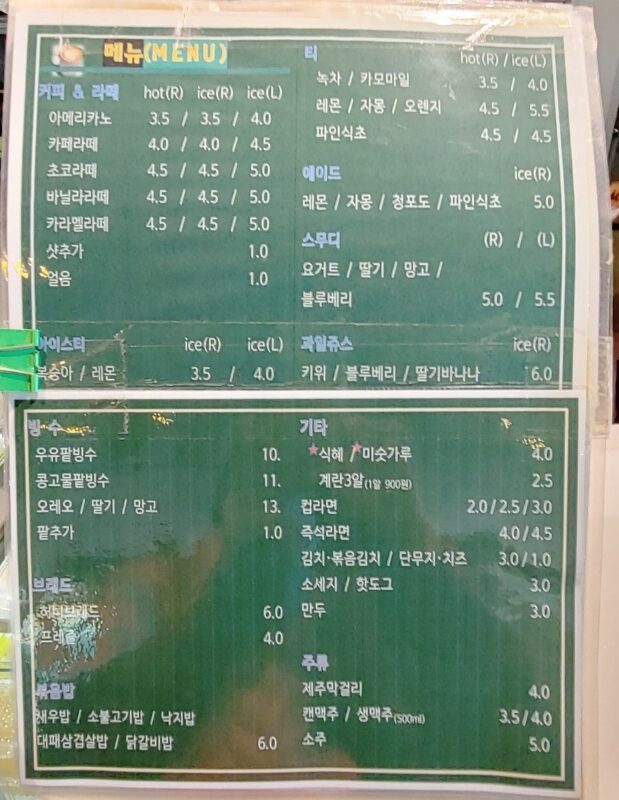 메뉴(MENU)
커피 & 라떼 hot(R) ice(R) ice(L)
아메리카노 3.5 / 3.5 / 4.0
카페라떼 4.0 / 4.0 / 4.5
초코라떼 4.5 / 4.5 / 5.0
바닐라라떼 4.5 / 4.5 / 5.0
카라멜라떼 4.5 / 4.5 / 5.0
샷추가 1.0
얼음 1.0
아이스티 ice(R) ice(L)
복숭아 / 레몬 3.5 / 4.0
티 hot(R) / ice(L)
녹차 / 카모마일 3.5 / 4.0
레몬 / 자몽 / 오렌지 4.5 / 5.5
파인식초 4.5 / 4.5
에이드 ice(R)
레몬 / 자몽 / 청포도 / 파인식초 5.0
스무디 (R) / (L)
요거트 / 딸기 / 망고 /
블루베리 5.0 / 5.5
과일쥬스 ice(R)
키위 / 블루베리 / 딸기바나나 6.0
빙수
우유팥빙수 10.
콩고물팥빙수 11.
오레오 / 딸기 / 망고 13.
팥추가 1.0
브레드
허니브레드 6.0
프레즐 4.0
볶음밥
새우밥 / 소불고기밥 / 낙지밥
대패삼겹살밥 / 닭갈비밥 6.0
기타
식혜 / 미숫가루 4.0
계란3알(1알 900원) 2.5
컵라면 2.0/2.5/3.0
즉석라면 4.0/4.5
김치·볶음김치 / 단무지·치즈 3.0/1.0
소세지 / 핫도그 3.0
만두 3.0
주류
제주막걸리 4.0
캔맥주 / 생맥주(500ml) 3.5/4.0
소주 5.0